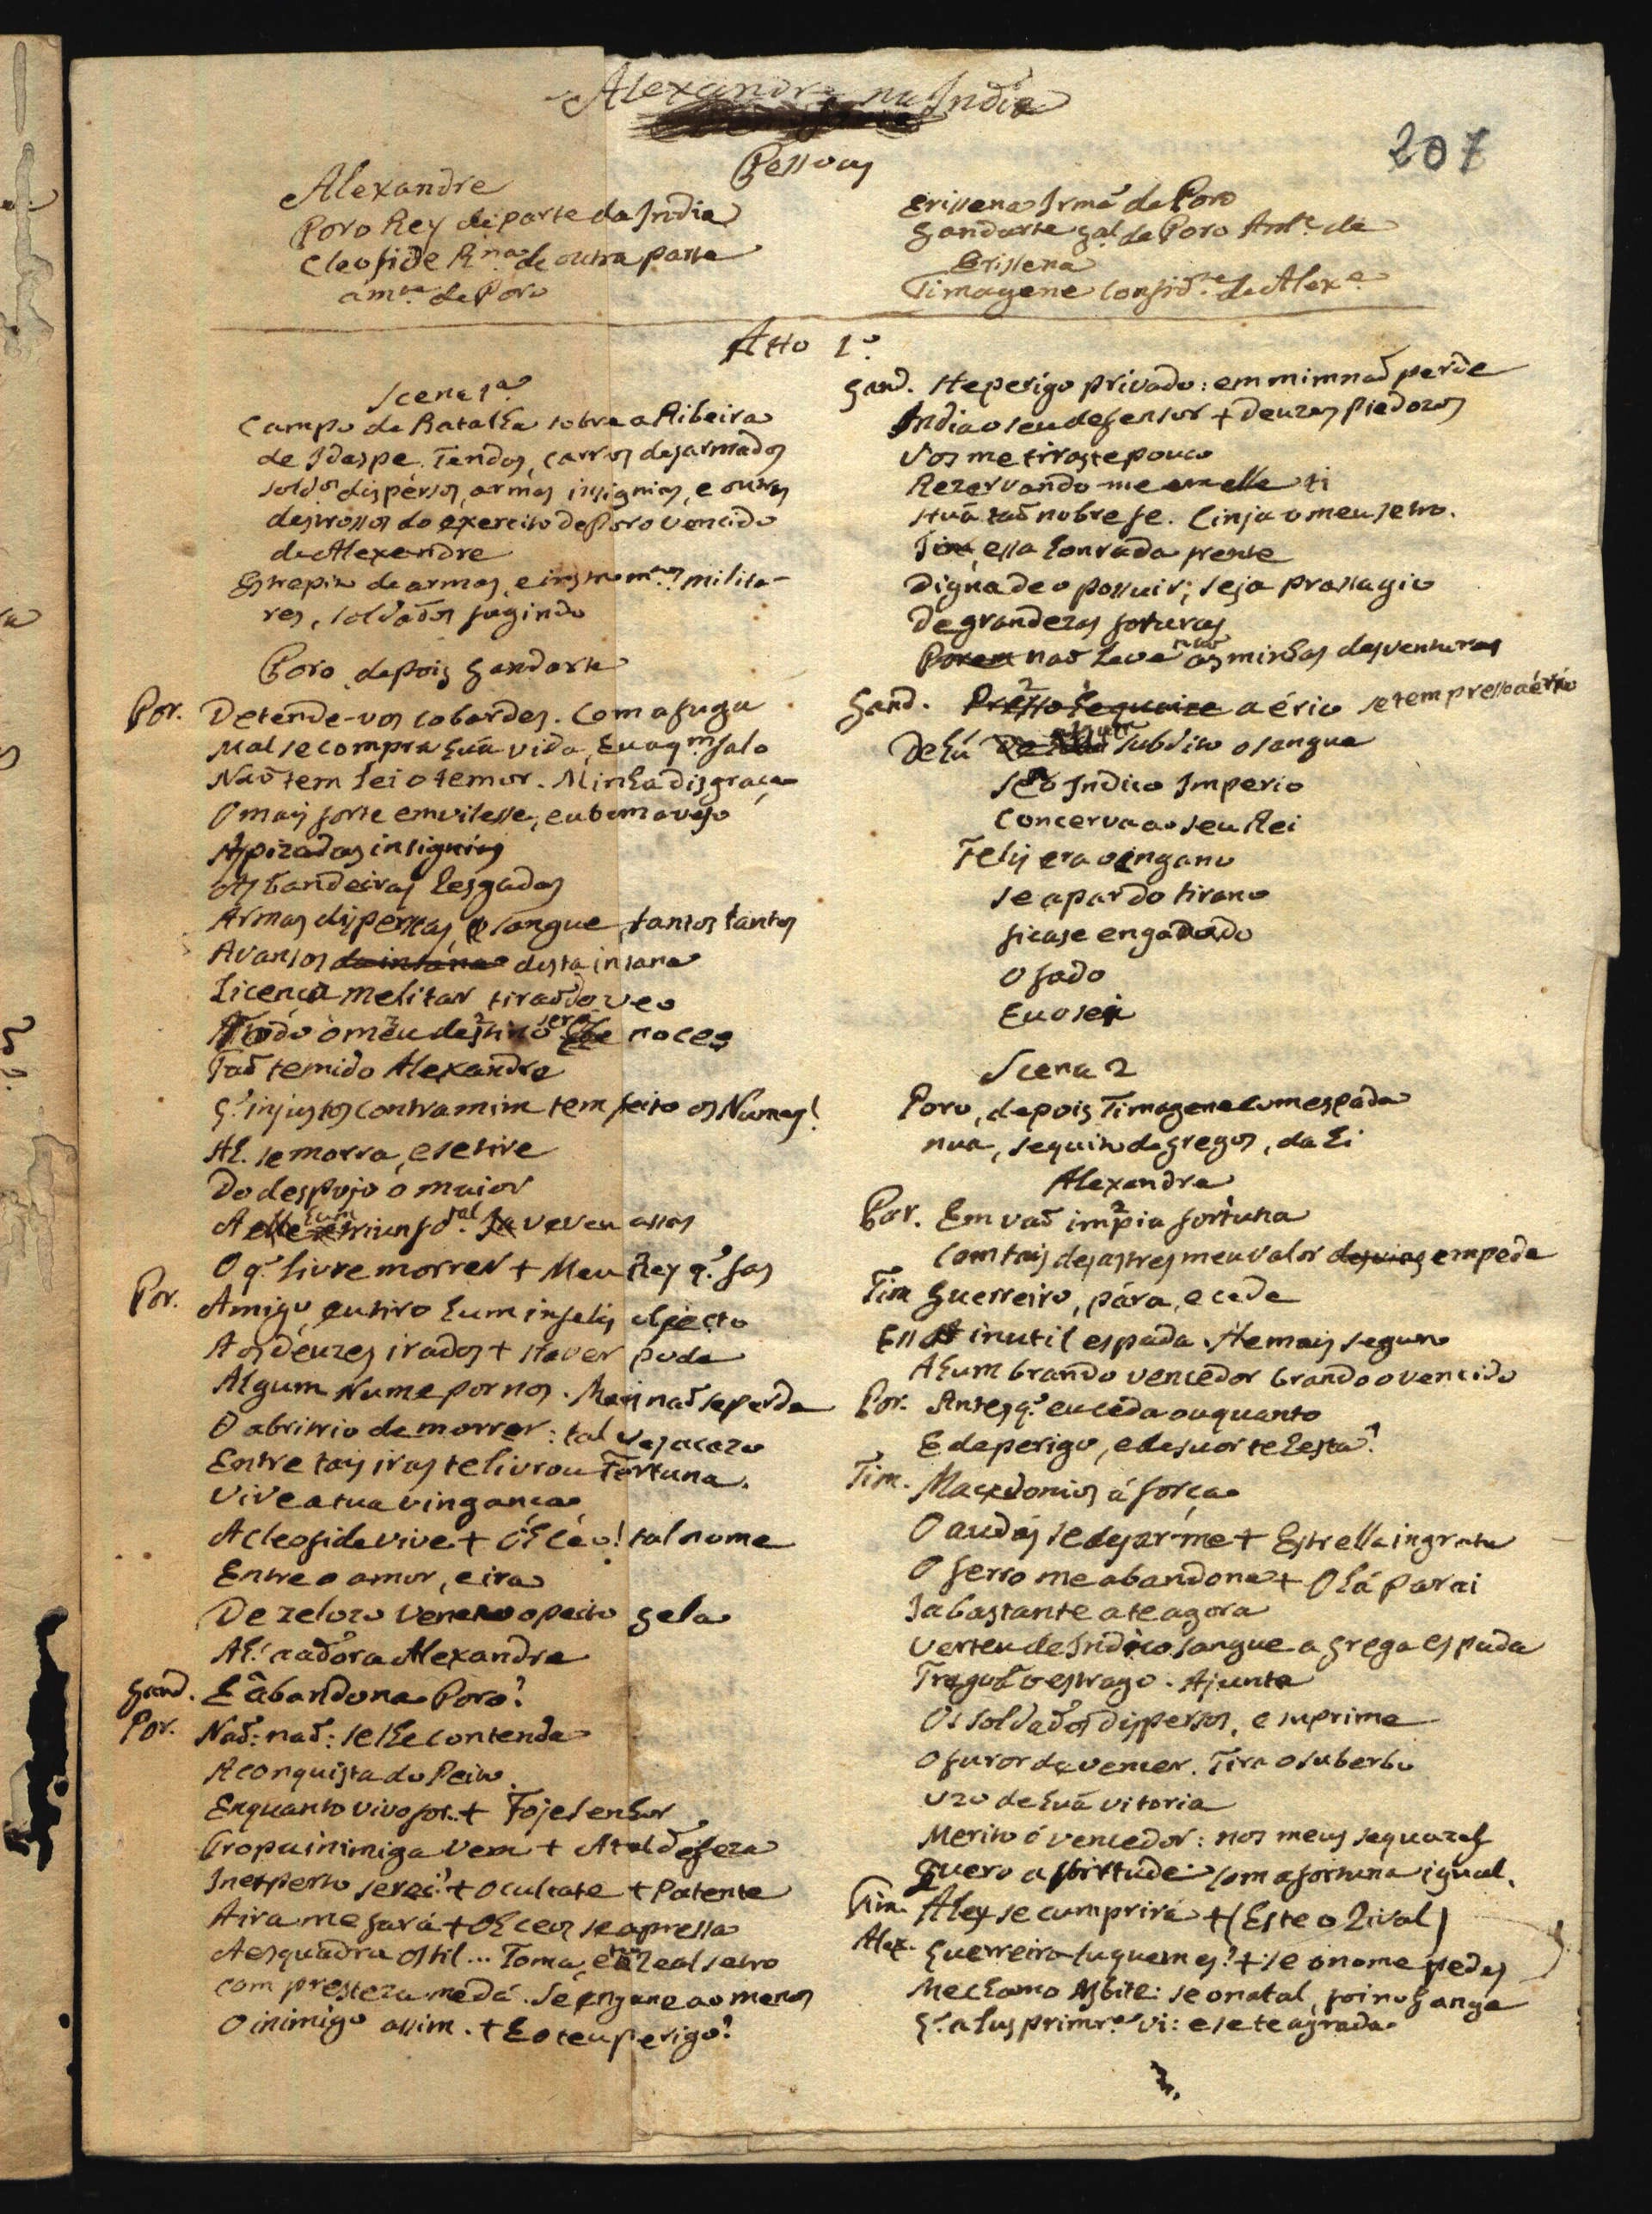 Alexandre na India
207
Pessoas
Alexandre
Poro Rey de parte da India
Cleofide R.na de outra parte
am.te de Poro
Erissena Irmã de Poro
Gandarte G.al de Poro Am.te de
Erissena
Timagene Confid.te de Alex.e
Atto 1.o
Scena 1.a
Campo de Batalha sobre a Ribeira
de Idaspe. Tendas, carros desarmados
sold.os dispersos, armas, insignias, e outros
destrossos do exercito de Poro vencido
de Alexandre
Estrepito de armas, e instrom.tos milita-
res, soldados fugindo
Poro, depois Gandarte
Por. Detende-vos cobardes. Com a fuga
Mal se compra huã vida,
Naõ tem lei o temor. Minha disgraça
O mais forte emvilesse, eu bem o vejo
Apizadas insignias
As bandeiras resgadas
Armas dispersas, o sangue, tantos tantos
Avansos da insana desta insana
Licença melitar tiraõ do veo
Todo o meu destino
Taõ temido Alexandre
Q.' injustos contra mim tem feito os Numes!
Ah. se morra, e se tire
Do despojo o maior
A elle hum triunfo.
O q.' livre morrer + Meu Rey q.' fas
Por. Amigo, eu tiro hum infelis objecto
Aos deuzes irados + Haver pode
Algum Nume por nos. Mais naõ se perda
O abritrio de morrer: tal ves acazo
Entre tais iras te livrou Fortuna.
Vive a tua vingança
A Cleofide vive + Oh Ceo! tal nome
Entre o amor, e ira
De zelozo veneno o peito gela
Ah! adora Alexandre
Gand. E abandona Poro?
Por. Naõ: naõ: se lhe contenda
A conquista do Peito
Enquanto vivo for. + Foje senhor
Tropa inimiga vem + A tal defeza
Inexperto serei? + Ocultate + Patente
A ira me fará + Oh Ceos se apressa
A esquadra ostil... Toma, e o real setro
Com presteza me dá. Se engane ao menos
O inimigo assim. + E o teu perigo?
Gand. He perigo privado: em mim naõ perde
India o seu defensor + Deuzes piedozos
Vos me tiraste pouco
Rezervando-me em elle ti
Huã taõ nobre fe. Cinja o meu setro.
essa honrada frente
Digna de o possuir; seja prassagio
De grandezas futuras
Porem naõ leve as minhas desventuras
Gand. Presso aério se tem presso aério
De hũ subdito o sangue
Se o Indico Imperio
Concerva ao seu Rei
Felis era o engano
Se a par do tirano
ficase enganado
O fado
Eu o sei
Scena 2
Poro, depois Timagene com espada
nua, sequito de gregos, dahi
Alexandre
Por. Em vaõ impia fortuna
Com tais desastres meu valor desvias empede
Tim Guerreiro, pára, e cede
Essa inutil espada. He mais seguro
A hum brando vencedor brando o vencido
Por. Antes q.' eu ceda ouquanto
E de perigo, e de suor te resta?
Tim. Macedonios á força
O audás se desar-me + Estrella ingrata
O ferro me abandona + Olá parai
Ja bastante ate agora
Verteu de Indico sangue a grega espada
Tragu o estrago. Ajunta
Os soldados dispersos, e suprime
O furor de vencer. Tira o suberbo
Uzo de huã vitoria
Merito ó vencedor: nos meus sequazes
Quero a virtude com a fortuna igual.
Tim. Alex se cumprirá + (Este o Rival)
Alex. Guerreiro tu quem es? + se o nome pedes
Me chamo Asbite: se o natal, foi no Ganga
Q.' a lus primr.o vi: e se te agrada